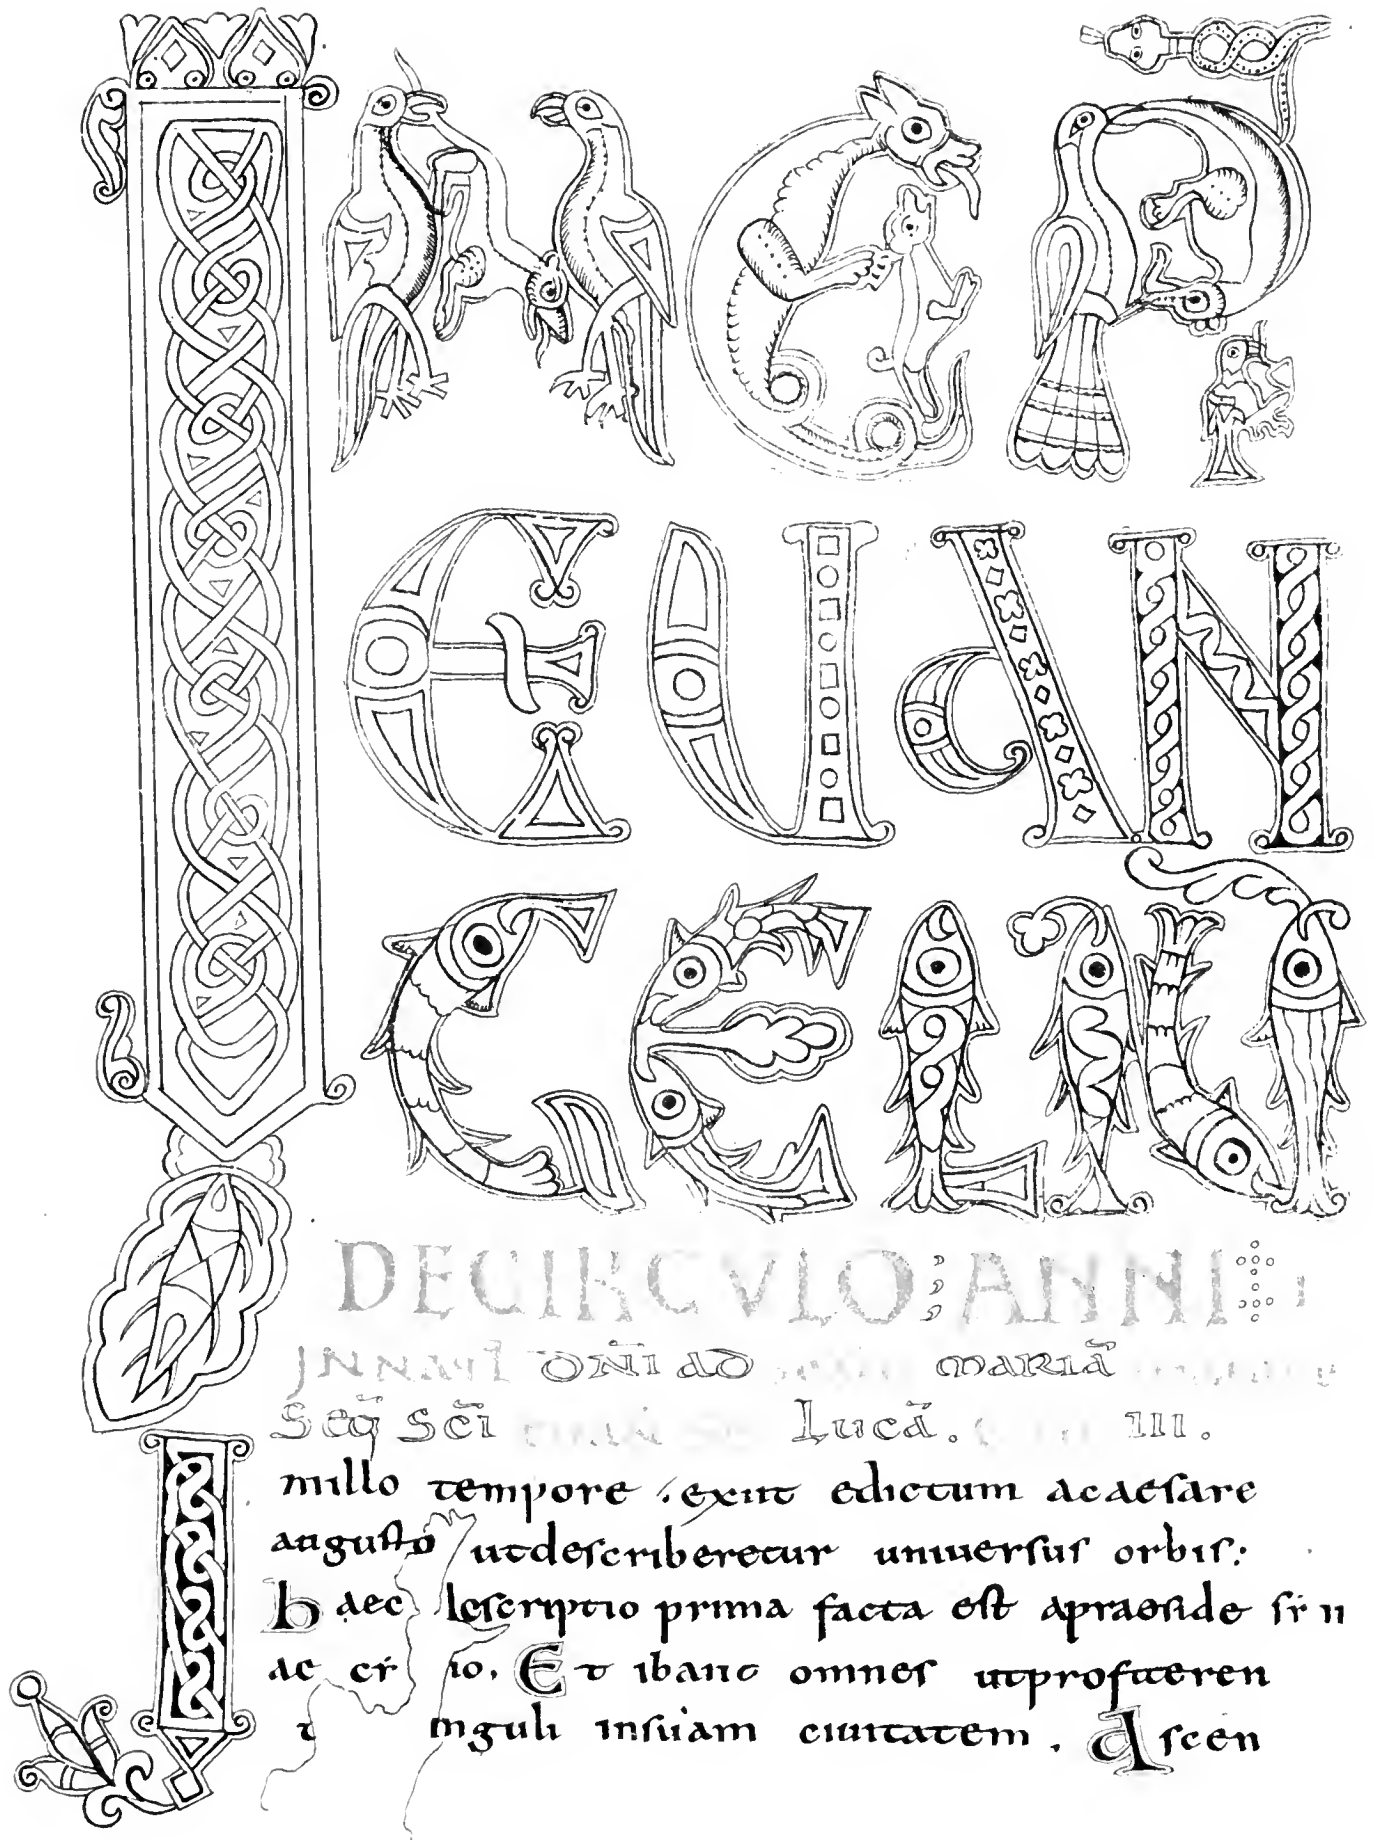 INCP̄
EUAN
GELIŪ
DE CIRCVLO: ANNI
IN NAT DN̄I AD MARIĀ
Seq̄ SC̄I Lucā. III.
In illo tempore. exiit edictum a caesare
augusto ut describeretur uniuersus orbis:
haec descriptio prima facta est a praeside
Et ibant omnes ut profiteren
singuli in suam ciuitatem. Ascen